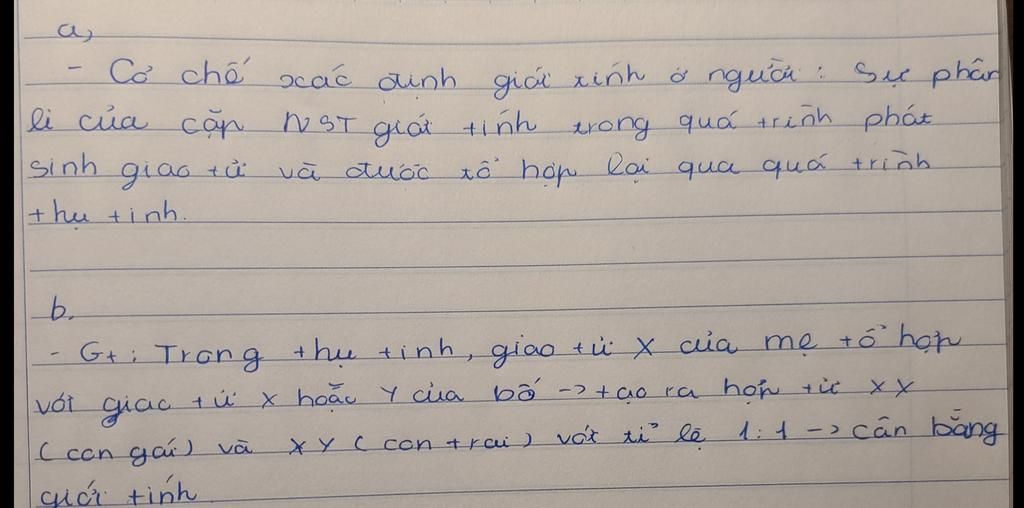 a,
- Cơ chế xác định giới tính ở người: Sự phân
li của cặp NST giới tính trong quá trình phát
sinh giao tử và được tổ hợp lại qua quá trình
thụ tinh.
b.
- Gt: Trong thụ tinh, giao tử X của mẹ tổ hợp
với giao tử X hoặc Y của bố -> tạo ra hợp tử XX
(con gái) và XY (con trai) với tỉ lệ 1:1 -> cân bằng
giới tính